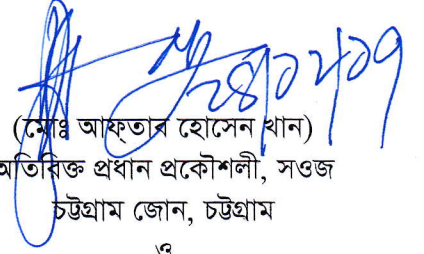 ২৪/১২/১৭
(মোঃ আফ্‌তাব হোসেন খান)
অতিরিক্ত প্রধান প্রকৌশলী, সওজ
চট্টগ্রাম জোন, চট্টগ্রাম
ও